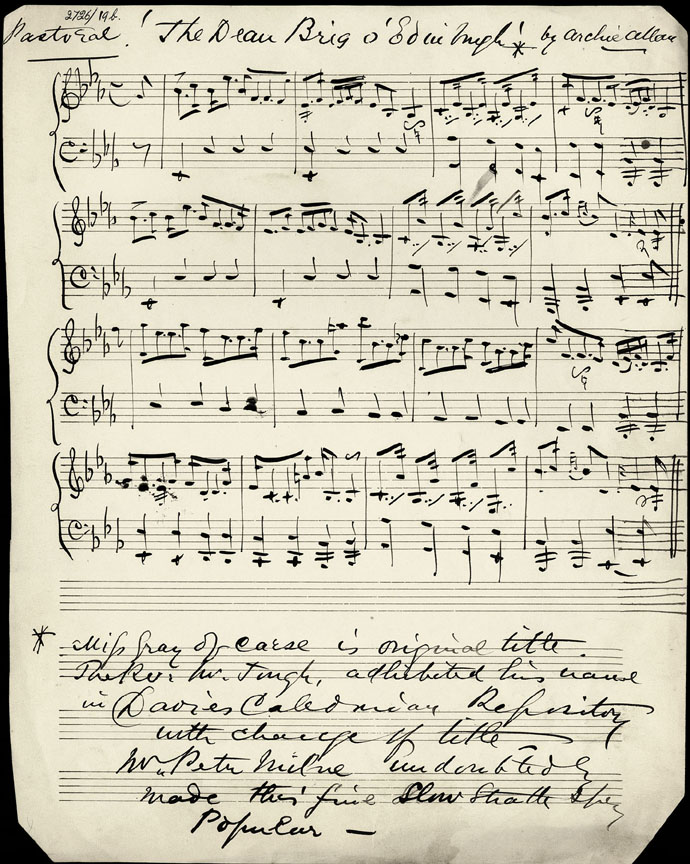 2726/19b.
Pastoral! The Dean Brig o' Edinburgh! * by Archie Allan
* Miss Gray of Carse is original title.
The Rev. Mr. Tough, adhibited his name
in Davies Caledonian Repository
with change of title
Mr. Peter Milne undoubtedly
made this fine Slow Strathspey
Popular —